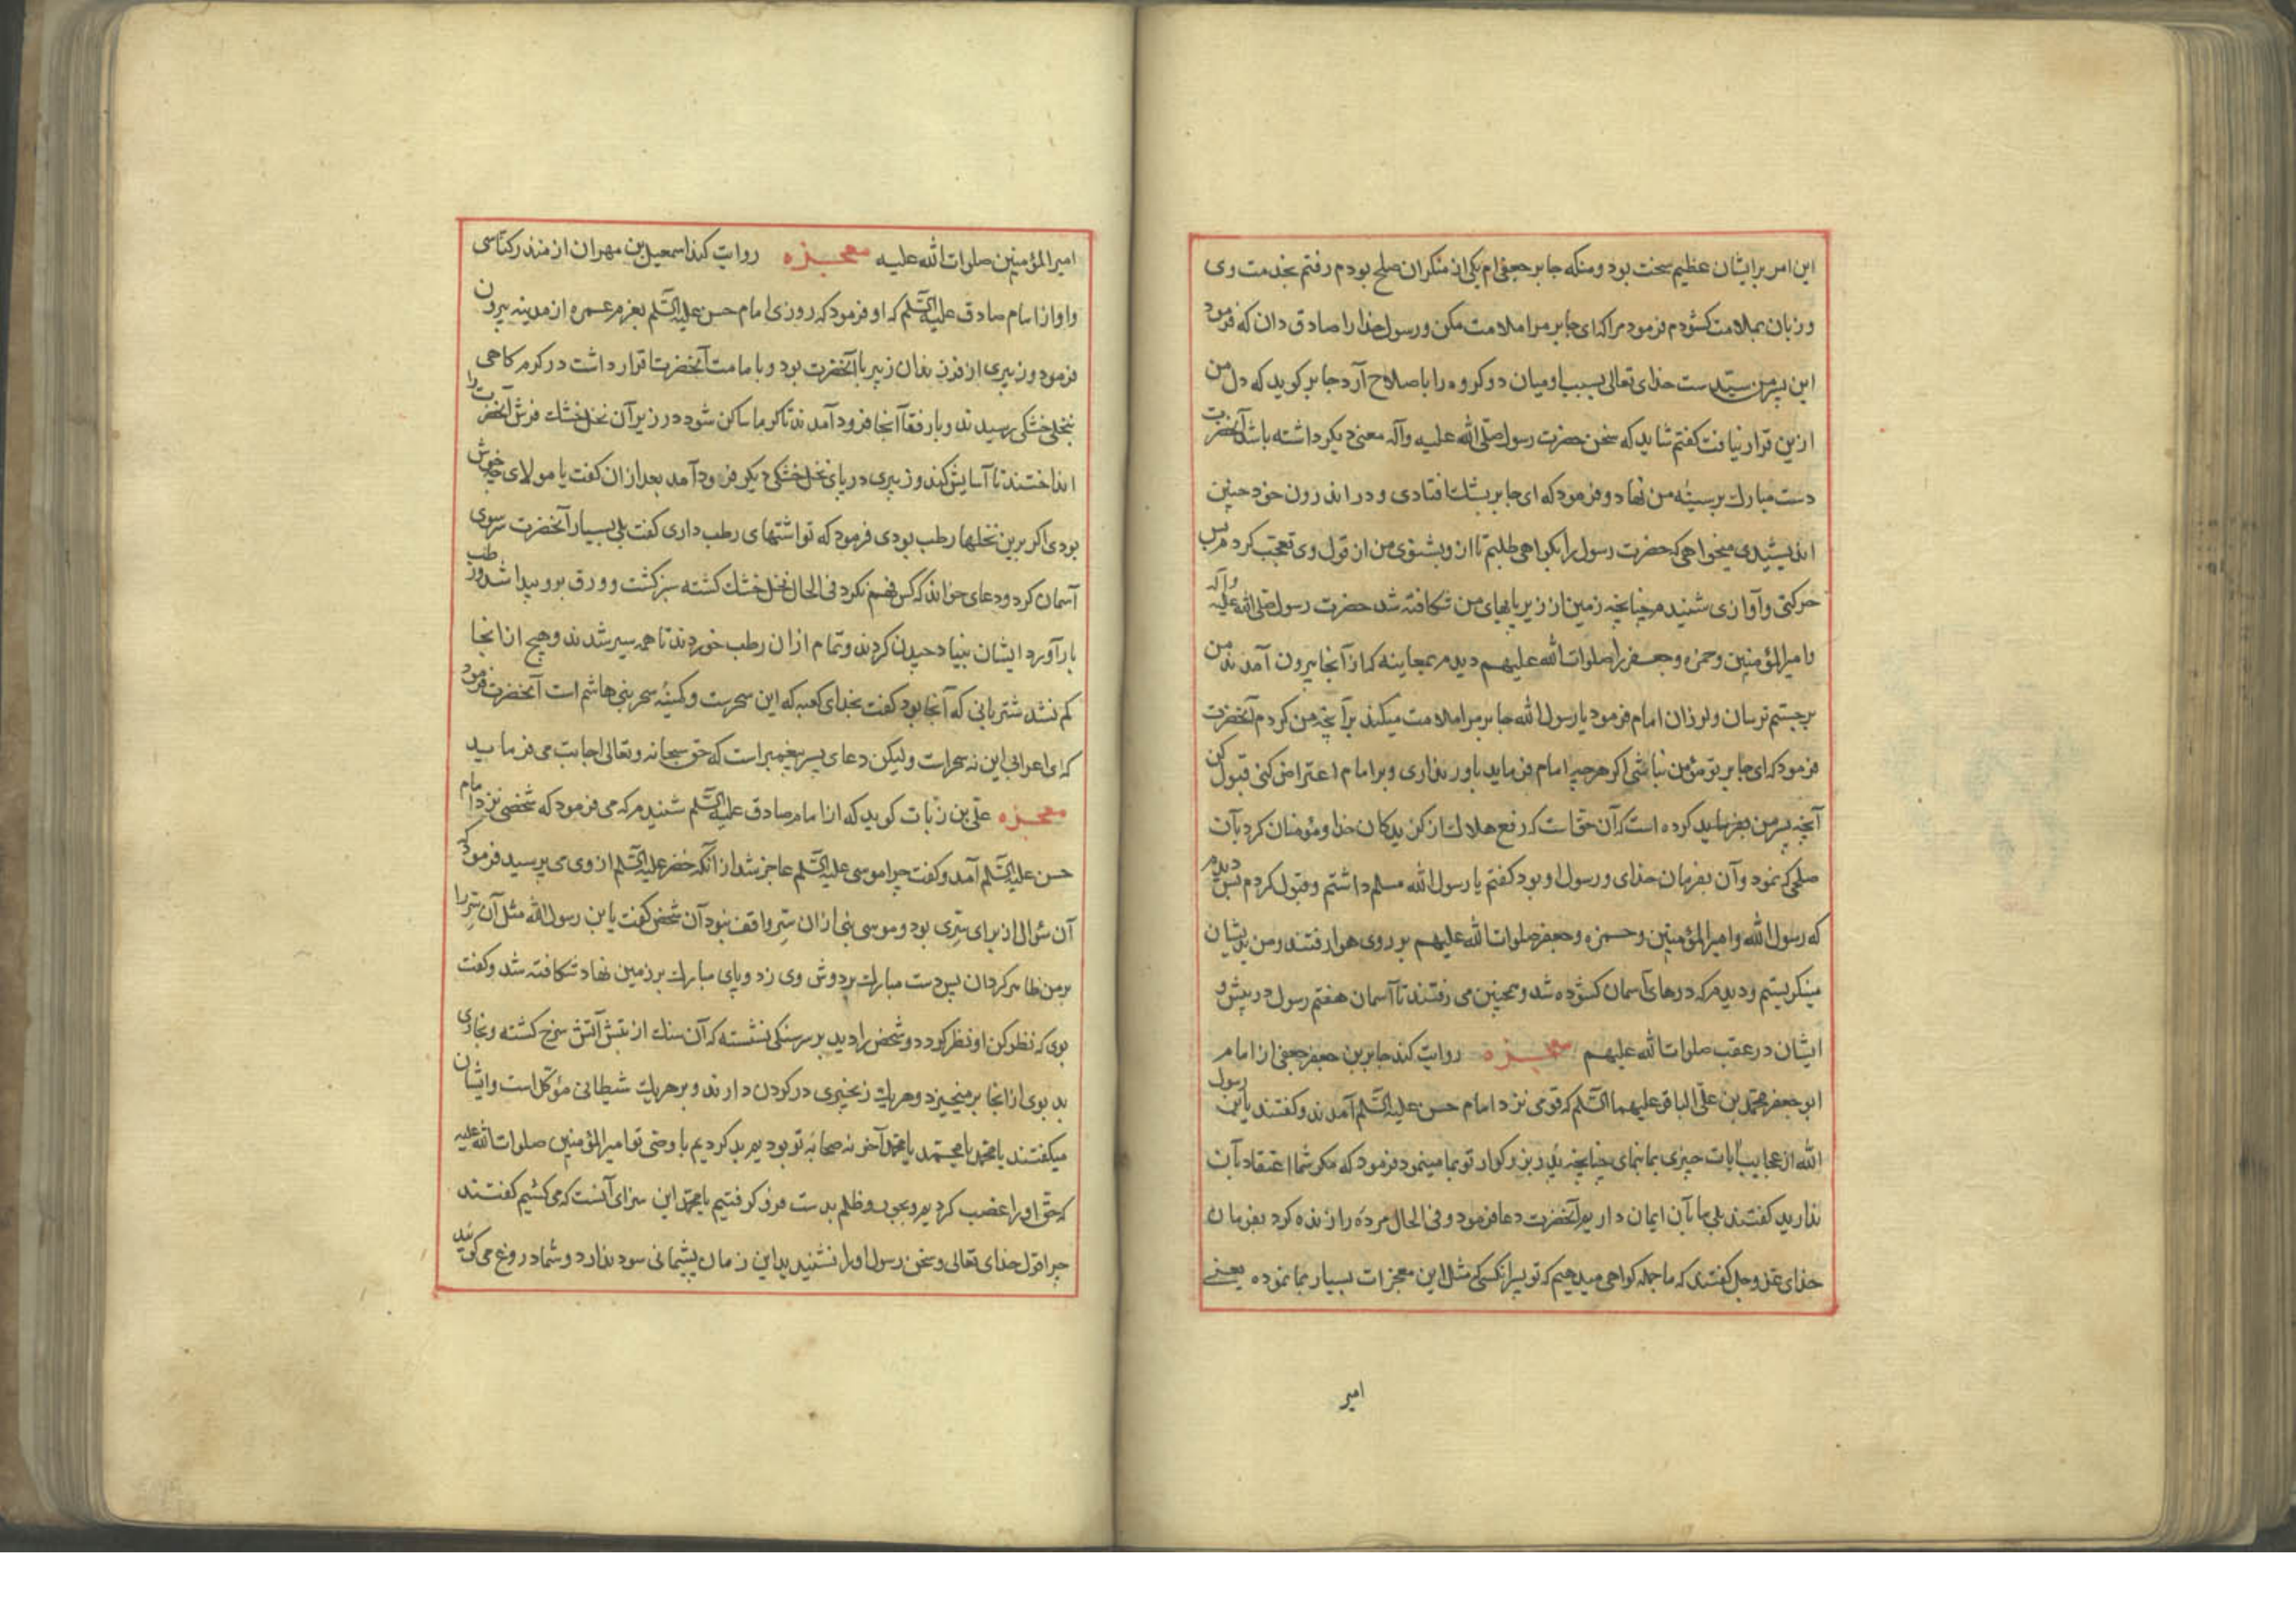 این امر بر ایشان عظیم سخت بود و منکه جابر جعفی‌ام یکی از منکران صلح بودم رفتم بخدمت وی
و زبان بملامت کشودم فرمود مرا که ای جابر مرا ملامت مکن و رسول خدا را صادق دان که فرمود
این پسر من سیّدست خدای تعالی بسبب او میان دو کروه را باصلاح آرد جابر کوید که دل من
ازین قرار نیافت کفتم شاید که سخن حضرت رسول صلّی الله علیه وآله معنی دیکر داشته باشد آنحضرت
دست مبارک بر سینهٔ من نهاد و فرمود که ای جابر بشک افتادی و در اندرون خود چنین
اندیشیدی میخواهی که حضرت رسول را بکواهی طلبم تا از و بشنوی من از قول وی تعجّب کردم پس
حرکتی و آوازی شنیدم چنانچه زمین از زیر پایهای من شکافته شد حضرت رسول صلی الله علیه وآله
با امیرالمؤمنین و حمزه و جعفر را صلوات الله علیهم دیدم بمعاینه که از آنجا بیرون آمدند من
برجستم ترسان و لرزان امام فرمود یا رسول الله جابر مرا ملامت میکند بر آنچه من کردم آنحضرت
فرمود که ای جابر تو مؤمن نباشی اکر هرچه امام فرماید باور نداری و بر امام اعتراض کنی قبول کن
آنچه پسر من بفرماید کرده است که آن حق است که رفع هلاک از کزیدکان خدا و مؤمنان کرد بآن
صلحی که نمود و آن بفرمان خدای و رسول او بود کفتم یا رسول الله مسلم داشتم و قبول کردم پس دیدم
که رسول الله و امیرالمؤمنین و حمزه و جعفر صلوات الله علیهم بر روی هوا رفتند و من بدیشان
مینکریستم و دیدم که درهای آسمان کشوده شد و همچنین می رفتند تا آسمان هفتم رسول در پیش و
ایشان در عقب صلوات الله علیهم معجزه روایت کند جابر بن جعفر جعفی از امام
ابو جعفر محمّد بن علی الباقر علیهما السّلم که قومی نزد امام حسن علیه السّلم آمدند و کفتند یا ابن رسول
الله از عجایب آیات چیزی بما نمای چنانچه پدر بزرکوار تو بما مینمود فرمود که مکر شما اعتقاد بآن
ندارید کفتند بلی ما بآن ایمان داریم آنحضرت دعا فرمود و فی الحال مرده را زنده کرد بفرمان
خدای عزّ وجل کفتند که ما جمله کواهی میدهیم که تو پسر آنکسی که مثل این معجزات بسیار بما نموده یعنی
امیر
امیرالمؤمنین صلوات الله علیه معجزه روایت کند اسمعیل بن مهران از منذر کناسی
و او از امام صادق علیه السّلم که او فرمود که روزی امام حسن علیه السّلم بعزم عمره از مدینه بیرون
فرمود و زبیری از فرزندان زبیر با آنحضرت بود و بامامت آنحضرت اقرار داشت در کرم کاهی
بنخلی خشکی رسیدند و با رفقا آنجا فرود آمدند تا کرما ساکن شود در زیر آن نخل خشک فرش آنحضرت را
انداختند تا آسایش کند و زبیری در پای نخل خشکی دیکر فرود آمد بعد از ان کفت یا مولای چه خوش
بودی اکر برین نخلها رطب بودی فرمود که تو اشتهای رطب داری کفت بلی بسیار آنحضرت سر سوی
آسمان کرد و دعای خواند که کس فهم نکرد فی الحال نخل خشک کشته سبز کشت و ورق برو پیدا شد و رطب
بار آورد ایشان بنیاد چیدن کردند و تمام از ان رطب خوردند تا همه سیر شدند و هیچ از انجا
کم نشد شتربانی که آنجا بود کفت بخدای کعبه که این سحرست و کمینهٔ سحر بنی هاشم است آنحضرت فرمود
که ای اعرابی این نه سحر است ولیکن دعای پسر پیغمبر است که حق سبحانه وتعالی اجابت می فرماید
معجزه علی بن زبات کوید که از امام صادق علیه السّلم شنیدم که می فرمود که شخصی نزد امام
حسن علیه السّلم آمد و کفت چرا موسی علیه السّلم عاجز شد از آنکه خضر علیه السّلم از وی می پرسید فرمود که
آن سؤال از برای سرّی بود و موسی نبی از ان سرّ واقف نبود آن شخص کفت یا بن رسول الله مثل آن سرّ را
بر من ظاهر کردان پس دست مبارک بر دوش وی زد و پای مبارک بر زمین نهاد شکافته شد و کفت
بوی که نظر کن او نظر کرد دو شخص را دید بر سر سنکی نشسته که آن سنک از تبش آتش سرخ کشته و بخاری
بد بوی از انجا برمیخیزد و هر یک زنجیری در کردن دارند و بر هر یک شیطانی مؤکّل است و ایشان
میکفتند یا محمّد یا محمّد یا محمّد آخر نه صحابهٔ تو بودیم بد کردیم با وصی تو امیرالمؤمنین صلوات الله علیه
که حق او را غصب کردیم و بجور و ظلم بدست فرو کرفتیم یا محمّد این سزای آنست که می کشیم کفتند
چرا قول خدای تعالی و سخن رسول او را نشنیدید این زمان پشیمانی سود ندارد و شما دروغ می کویید